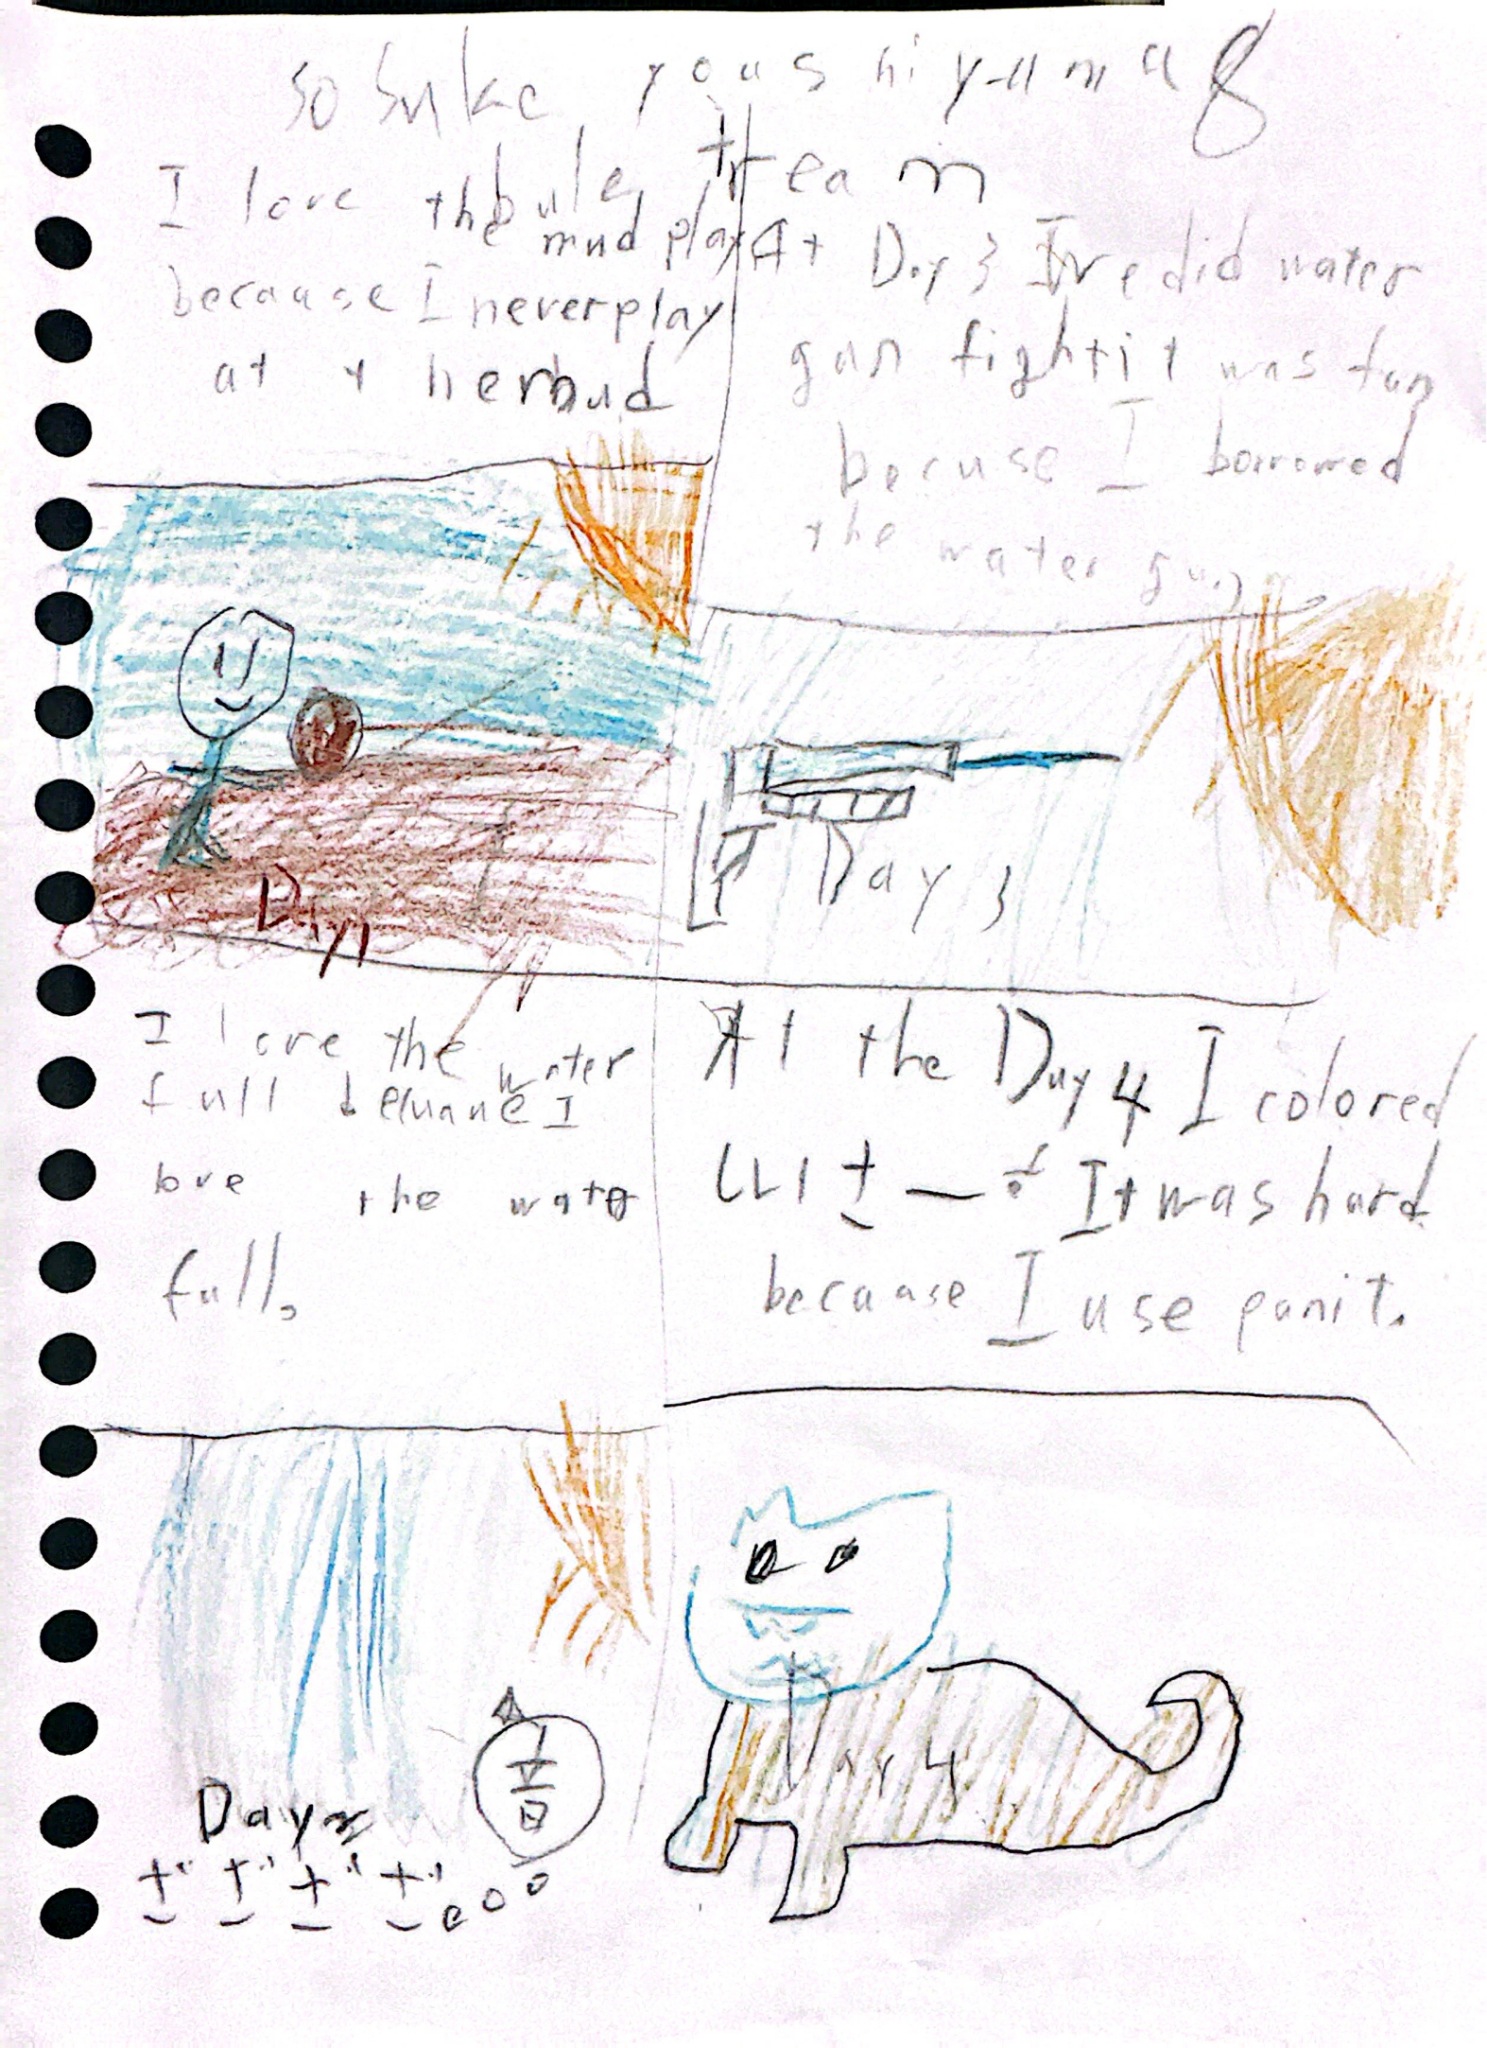 Sosuke youshiyama 8
bule team
I love the mud play
because I never play
at
At Day 3 We did water
gun fight it was fun
becuse I borrowed
the water gun
Day 1
Day 3
I love the water
full because I
love the wate
full.
At the Day 4 I colored
シーサー It was hard
because I use panit.
Day 2
音
ザザザザ
Day 4